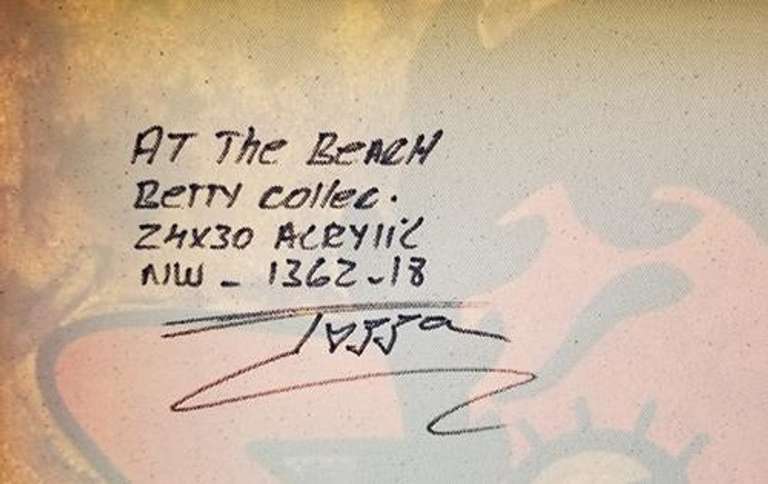 AT The BEACH
BETTY COllEC.
24X30 ACRYlIC
NW - 1362-18